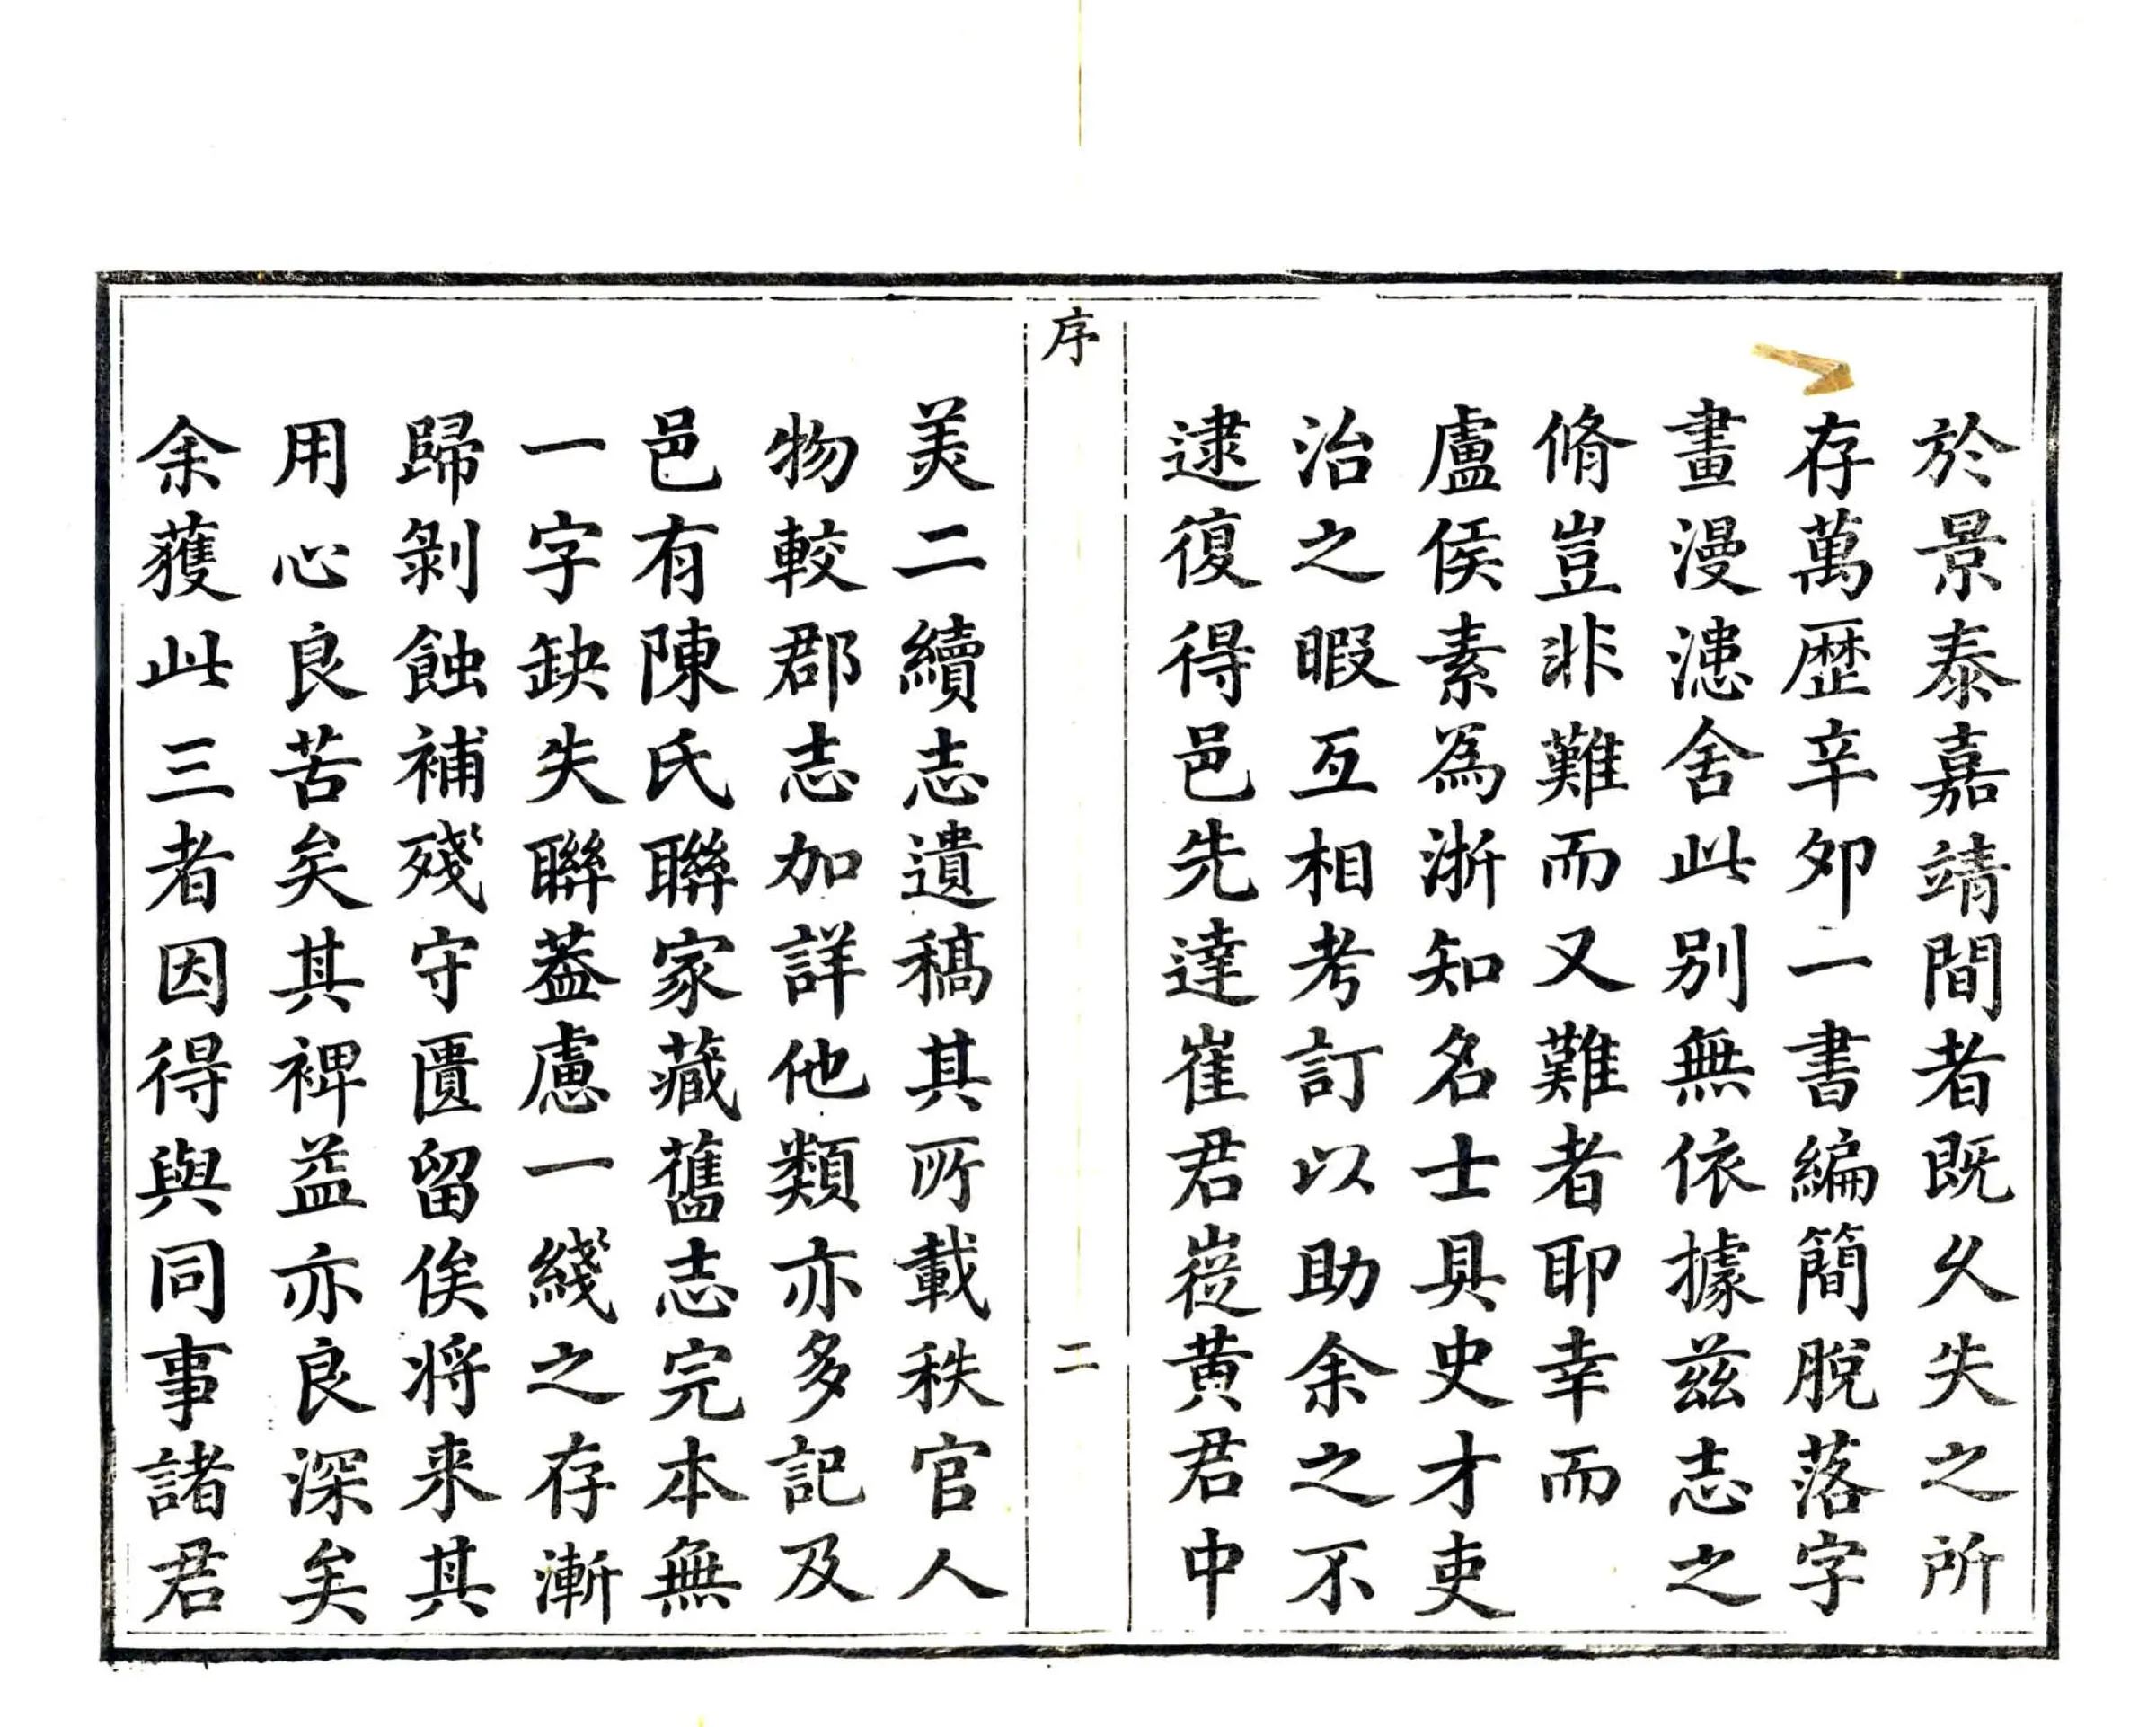 於景泰嘉靖間者既久失之所
存萬歷辛夘一書編簡脫落字
畫漫漶舍此别無依據兹志之
脩豈非難而又難者耶幸而
盧侯素為浙知名士具史才吏
治之暇互相考訂以助余之不
逮復得邑先達崔君嵸黄君中
序
二
美二續志遺稿其所載秩官人
物較郡志加詳他類亦多記及
邑有陳氏聯家藏舊志完本無
一字缺失聯葢慮一綫之存漸
歸剝蝕補殘守匱留俟将来其
用心良苦矣其裨益亦良深矣
余獲此三者因得與同事諸君